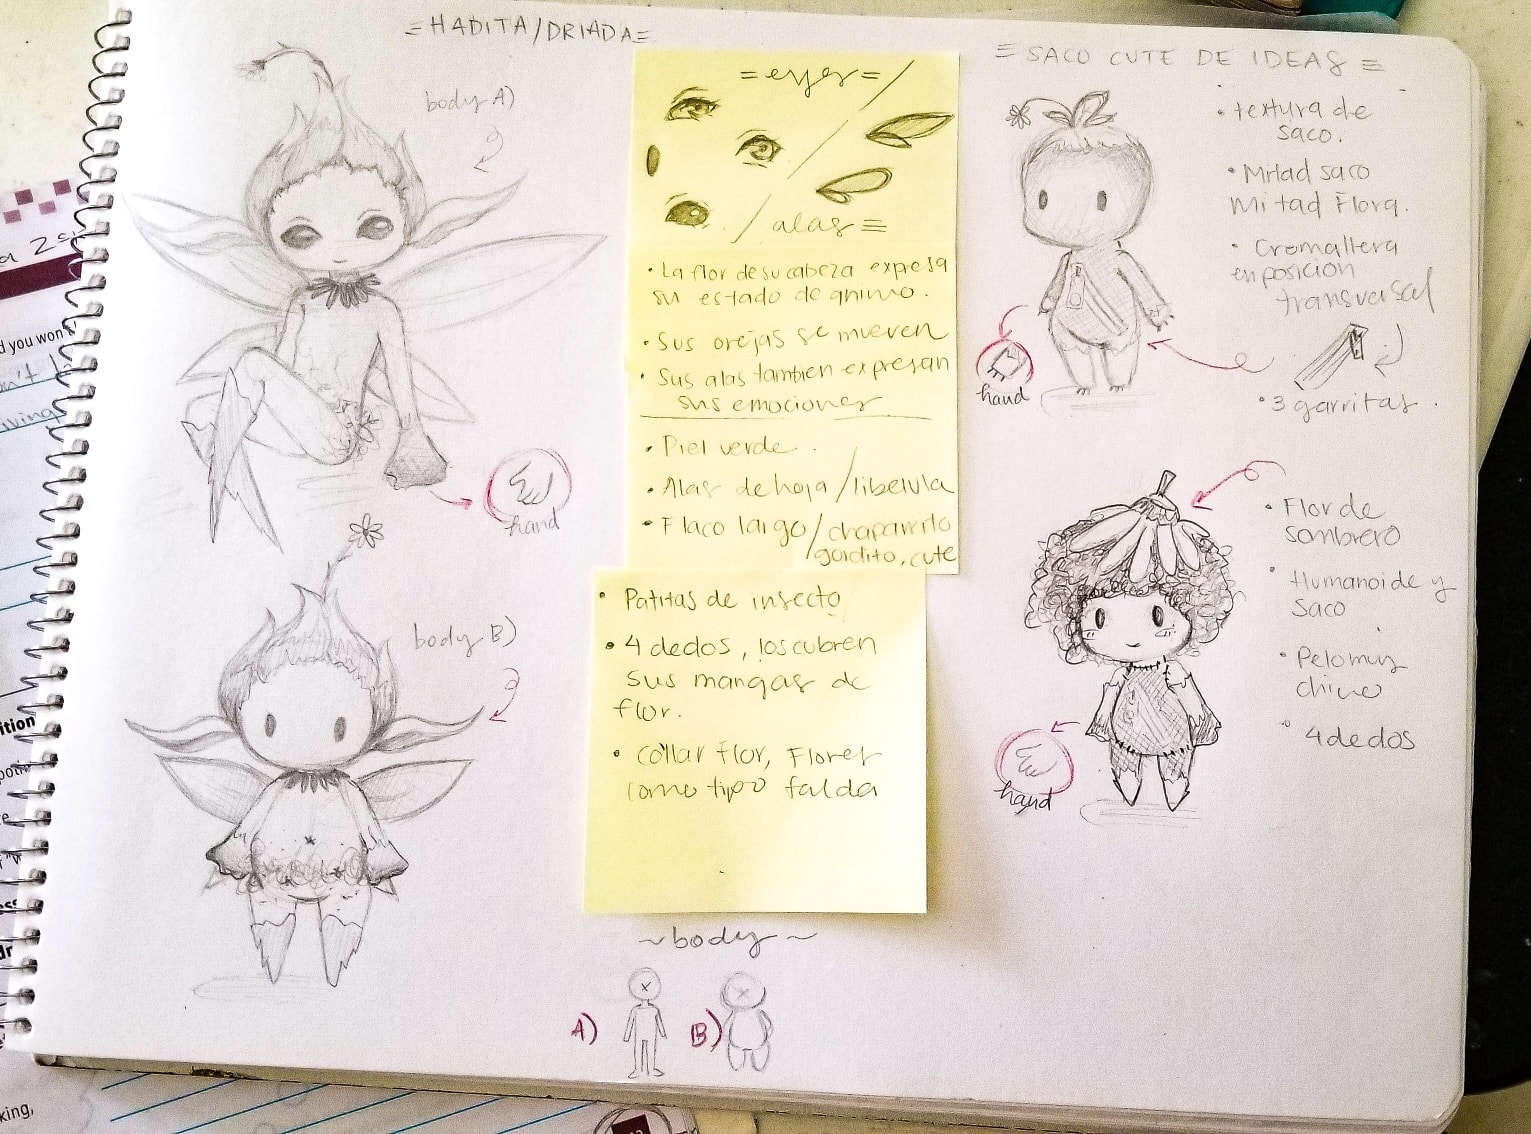 =HADITA/DRIADA=
body A)
hand
body B)
=eyes=/
/alas=
• La flor de su cabeza expresa
su estado de animo.
• Sus orejas se mueven
• Sus alas tambien expresan
sus emociones
• Piel verde.
• Alas de hoja/libelula
• Flaco largo/chaparrito
gordito, cute
• Patitas de insecto
• 4 dedos, los cubren
sus mangas de
flor.
• Collar flor, Flores
como tipo falda
~body~
A)
B)
= SACO CUTE DE IDEAS =
• textura de
saco.
• Mitad saco
Mitad Flora.
• Cromallera
en posicion
transversal
hand
• 3 garritas.
• Flor de
sombrero
• Humanoide y
saco
• Pelo muy
chino
• 4 dedos
hand
d you won't
iving
ition
king,